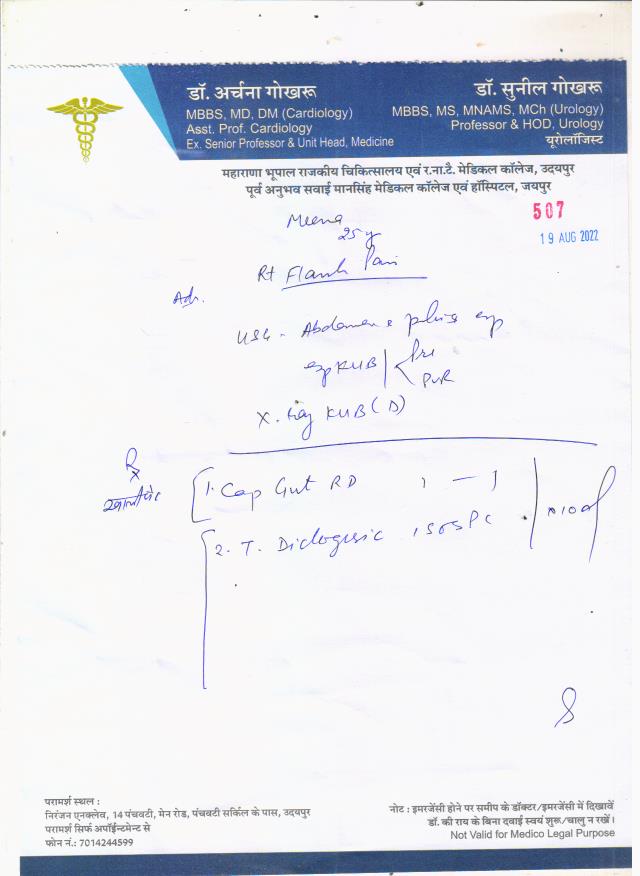 डॉ. अर्चना गोखरू
MBBS, MD, DM (Cardiology)
Asst. Prof. Cardiology
Ex. Senior Professor & Unit Head, Medicine
डॉ. सुनील गोखरू
MBBS, MS, MNAMS, MCh (Urology)
Professor & HOD, Urology
यूरोलॉजिस्ट
महाराणा भूपाल राजकीय चिकित्सालय एवं र.ना.टै. मेडिकल कॉलेज, उदयपुर
पूर्व अनुभव सवाई मानसिंह मेडिकल कॉलेज एवं हॉस्पिटल, जयपुर
507
19 AUG 2022
Meena
25 y
Rt Flank Pain
Adv.
USG - Abdomen
KUB Pre
PVR
X-Ray KUB (D)
Rx
खालीपेट
1. Cap Gut RD 1 - 1
2. T. Diclogesic 1 SOS PC
x 10 d
परामर्श स्थल :
निरंजन एनक्लेव, 14 पंचवटी, मेन रोड, पंचवटी सर्किल के पास, उदयपुर
परामर्श सिर्फ अपॉईन्टमेन्ट से
फोन नं.: 7014244599
नोट : इमरजेंसी होने पर समीप के डॉक्टर/इमरजेंसी में दिखावें
डॉ. की राय के बिना दवाई स्वयं शुरू/चालु न रखें।
Not Valid for Medico Legal Purpose